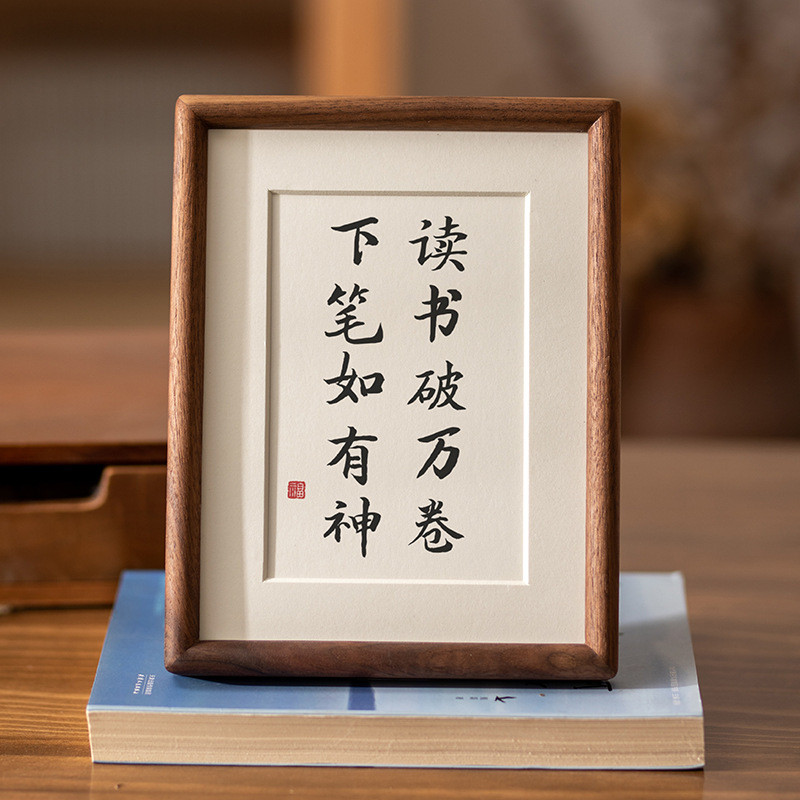 读书破万卷
下笔如有神
福